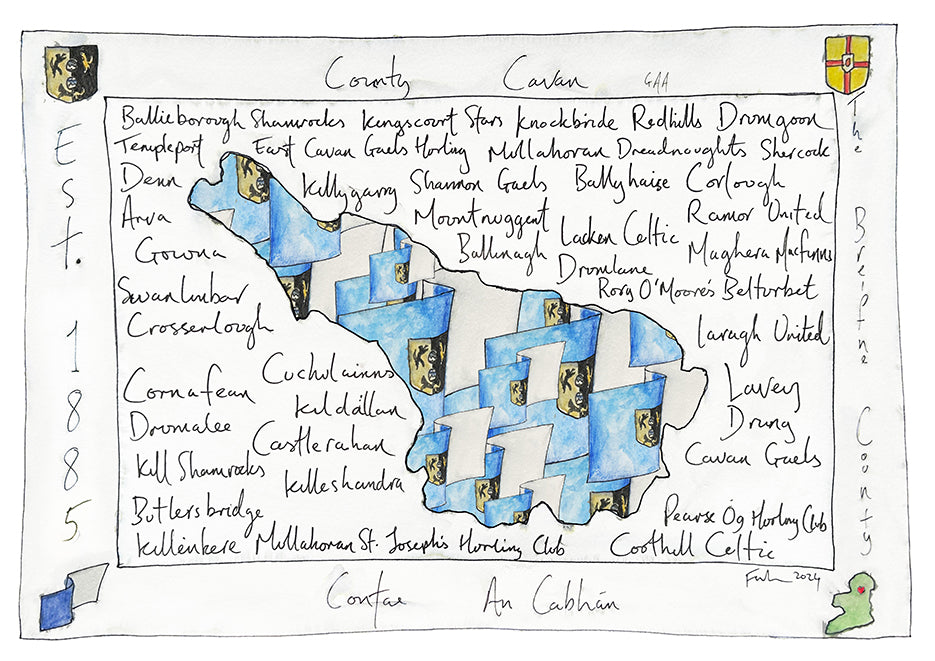 County Cavan GAA
Est. 1885
The Breifne County
Ballieborough Shamrocks Kingscourt Stars Knockbride Redhills Drumgoon
Templeport East Cavan Gaels Hurling Mullahoran Dreadnaughts Shercock
Denn Killygarry Shannon Gaels Ballyhaise Corlough
Arva Mountnugent Ramor United
Gowna Ballinagh Lacken Celtic Maghera MacFinns
Drumlane
Swanlinbar Rory O'Moore's Belturbet
Crosserlough Laragh United
Cornafean Cuchulainns Lavey
Drumalee Kildallan Drung
Castlerahan Cavan Gaels
Kill Shamrocks Killeshandra
Butlersbridge Pearse Óg Hurling Club
Killinkere Mullahoran St. Joseph's Hurling Club Coothill Celtic
2024
Contae An Cabhán